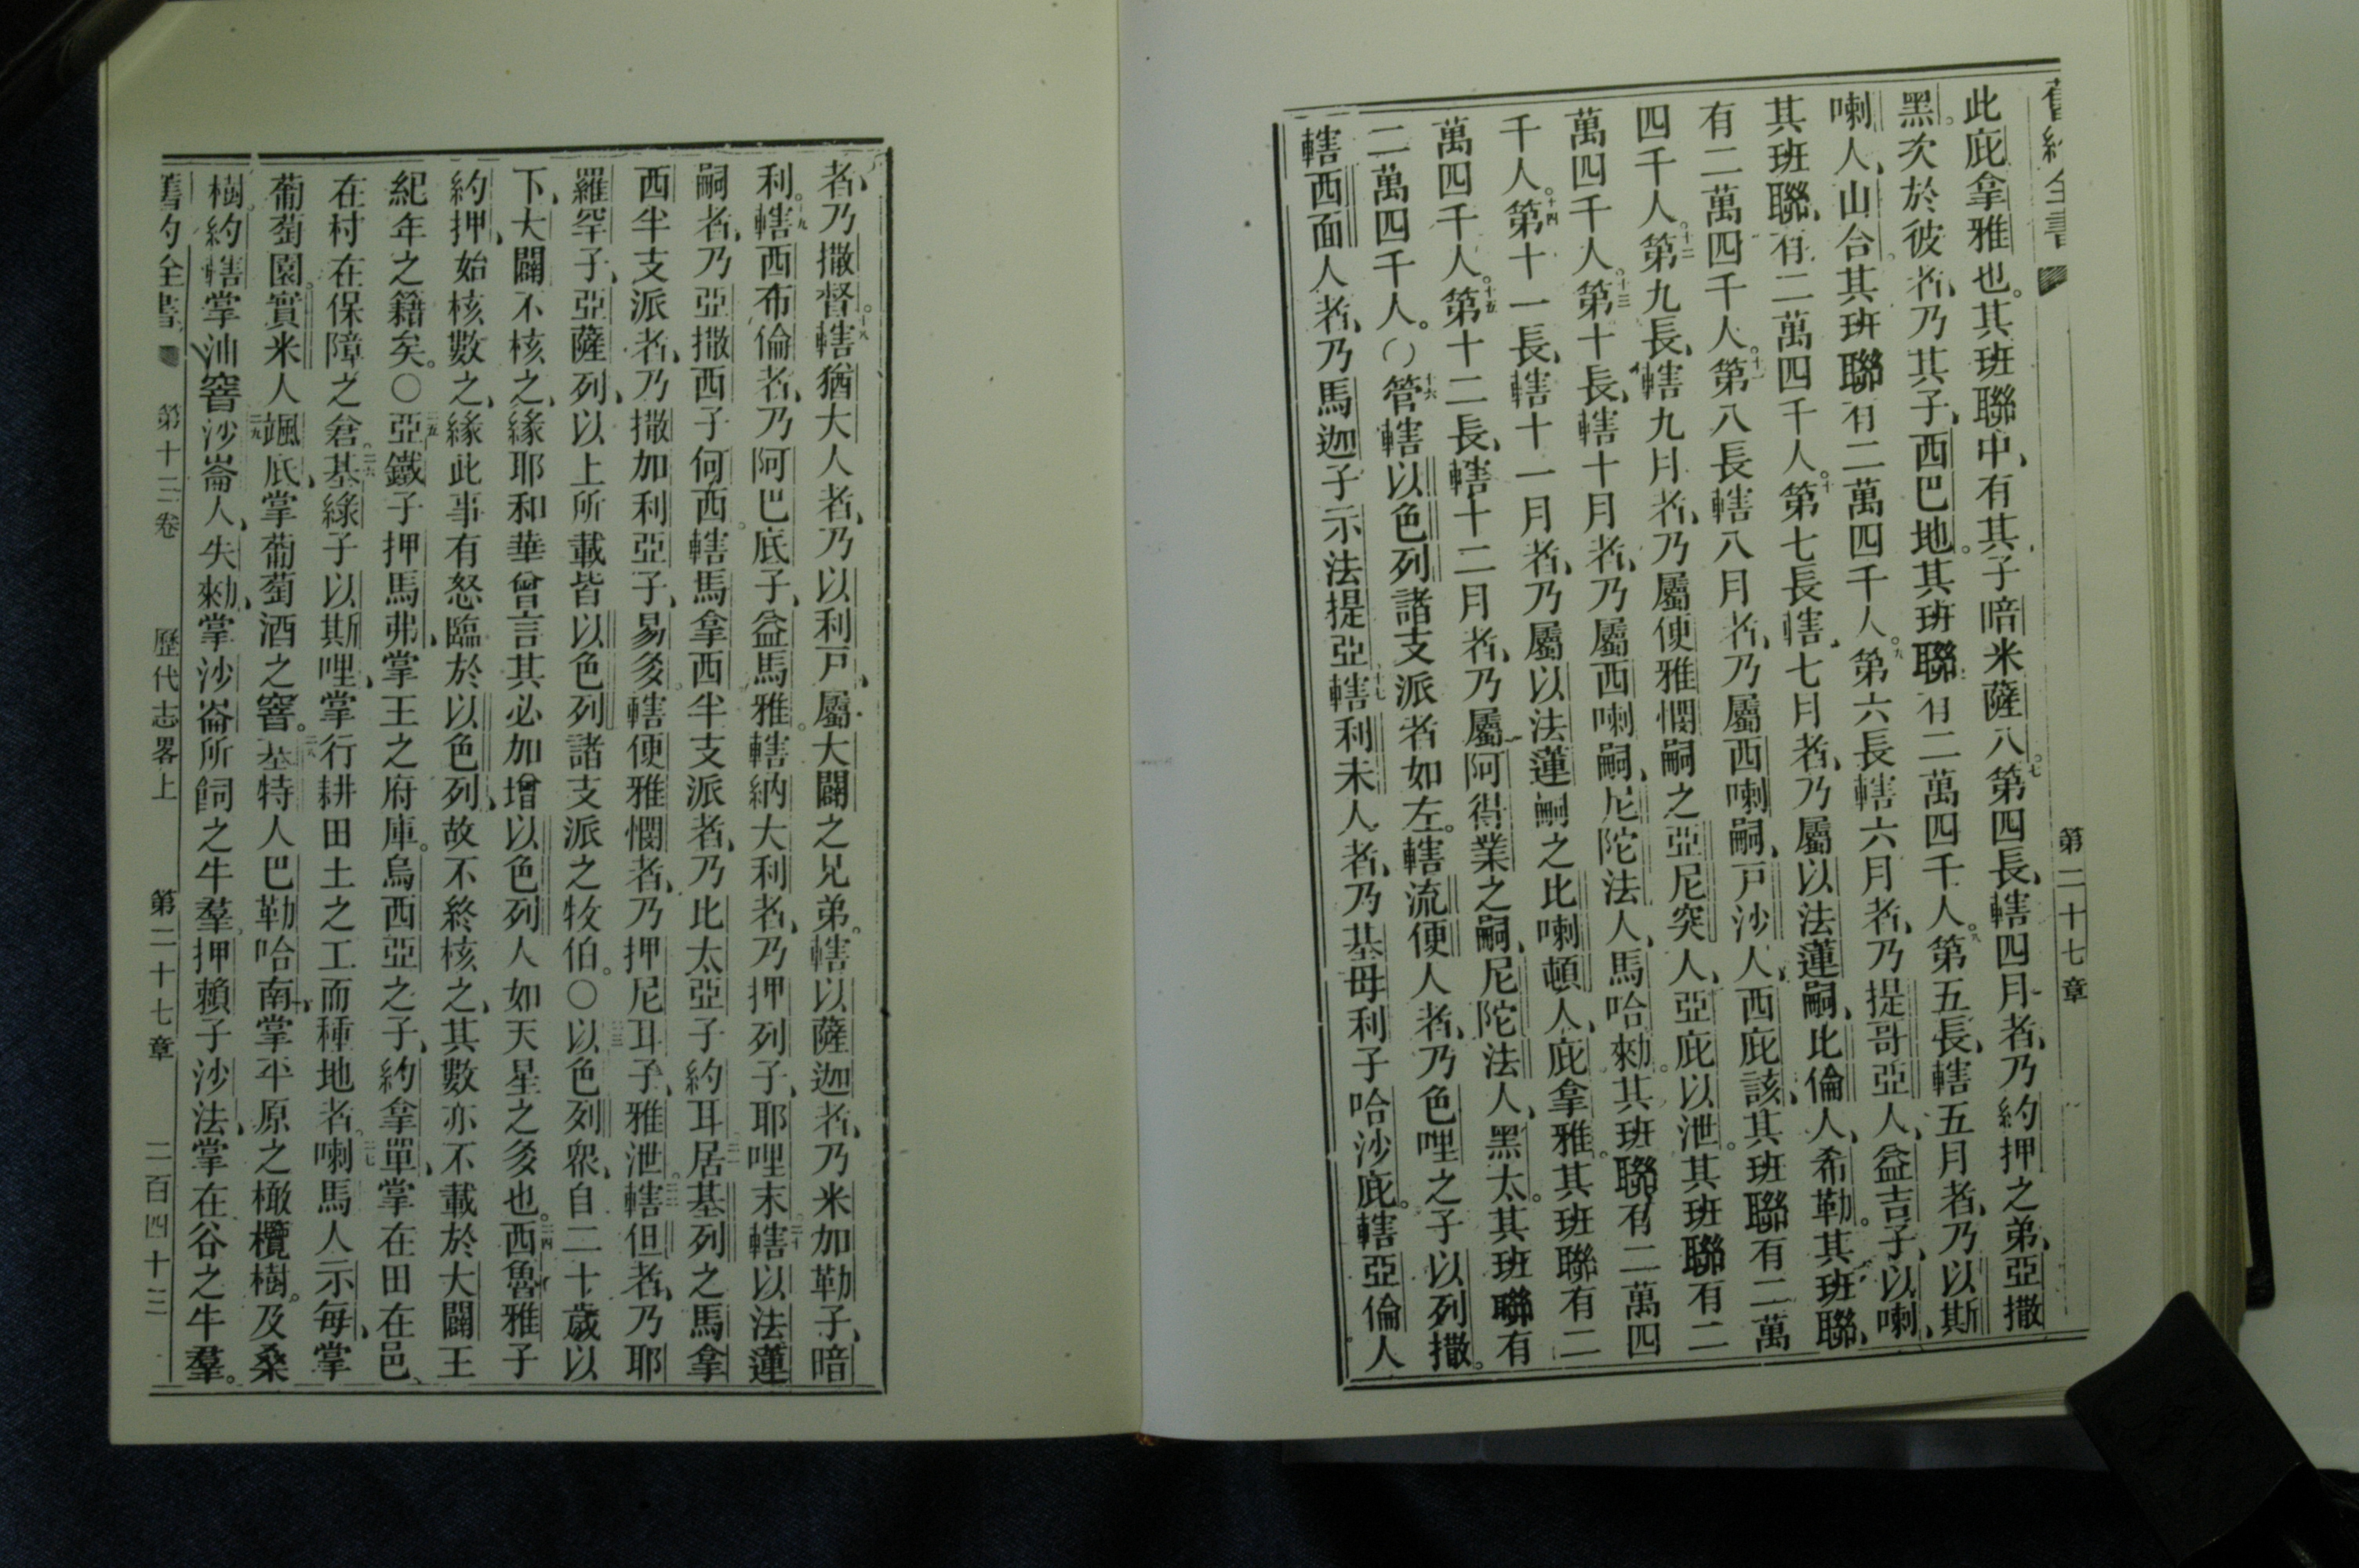 舊約全書 第二十七章
此庇拿雅也。其班聯中、有其子喑米薩八。七第四長、轄四月者、乃約押之弟、亞撒
黑。次於彼者、乃其子、西巴地。其班聯有二萬四千人。八第五長、轄五月者、乃以斯
喇人、山合。其班聯有二萬四千人。九第六長轄六月者、乃提哥亞人、益吉子、以喇、
其班聯、有二萬四千人。十第七長轄七月者、乃屬以法蓮嗣、比倫人、希勒。其班聯、
有二萬四千人。十一第八長轄八月者、乃屬西喇嗣、戸沙人、西庇該、其班聯有二萬
四千人。十二第九長、轄九月者、乃屬便雅憫嗣之亞尼突人、亞庇以泄。其班聯有二
萬四千人。十三第十長、轄十月者、乃屬西喇嗣、尼陀法人、馬哈勑。其班聯有二萬四
千人。十四第十一長、轄十一月者、乃屬以法蓮嗣之比喇頓人、庇拿雅。其班聯有二
萬四千人。十五第十二長、轄十二月者、乃屬阿得業之嗣、尼陀法人、黑太。其班聯有
二萬四千人。〇十六管轄以色列諸支派者如左。轄流便人者、乃色哩之子以列撒。
轄西面人者、乃馬迦子示法提亞。十七轄利未人者、乃基母利子哈沙庇。轄亞倫人
者、乃撒督。十八轄猶大人者、乃以利戸、屬大闢之兄弟。轄以薩迦者、乃米加勒子、喑
利。十九轄西布倫者、乃阿巴底子、益馬雅。轄納大利者、乃押列子、耶哩末。二十轄以法蓮
嗣者、乃亞撒西子何西。轄馬拿西半支派者、乃比太亞子約耳。二一居基列之馬拿
西半支派者、乃撒加利亞子、易多。轄便雅憫者、乃押尼耳子、雅泄。二二轄但者、乃耶
羅罕子、亞薩列、以上所載皆以色列諸支派之牧伯。〇二三以色列衆、自二十歲以
下、大闢不核之、緣耶和華曾言其必加增以色列人如天星之多也。二四西魯雅子
約押、始核數之、緣此事有怒臨於以色列、故不終核之、其數亦不載於大闢王
紀年之籍矣。〇二五亞鐵子押馬弗、掌王之府庫。烏西亞之子、約拿單、掌在田在邑、
在村在保障之倉。二六基綠子以斯哩、掌行耕田土之工而種地者。二七喇馬人示每、掌
葡萄園。實米人颯底、掌葡萄酒之窖。二八基特人巴勒哈南、掌平原之橄欖樹。及桑
樹。約轄掌油窖。二九沙崙人、失勑、掌沙崙所飼之牛羣。押賴子沙法、掌在谷之牛羣。
舊約全書 第十三卷 歷代志畧上 第二十七章 二百四十三